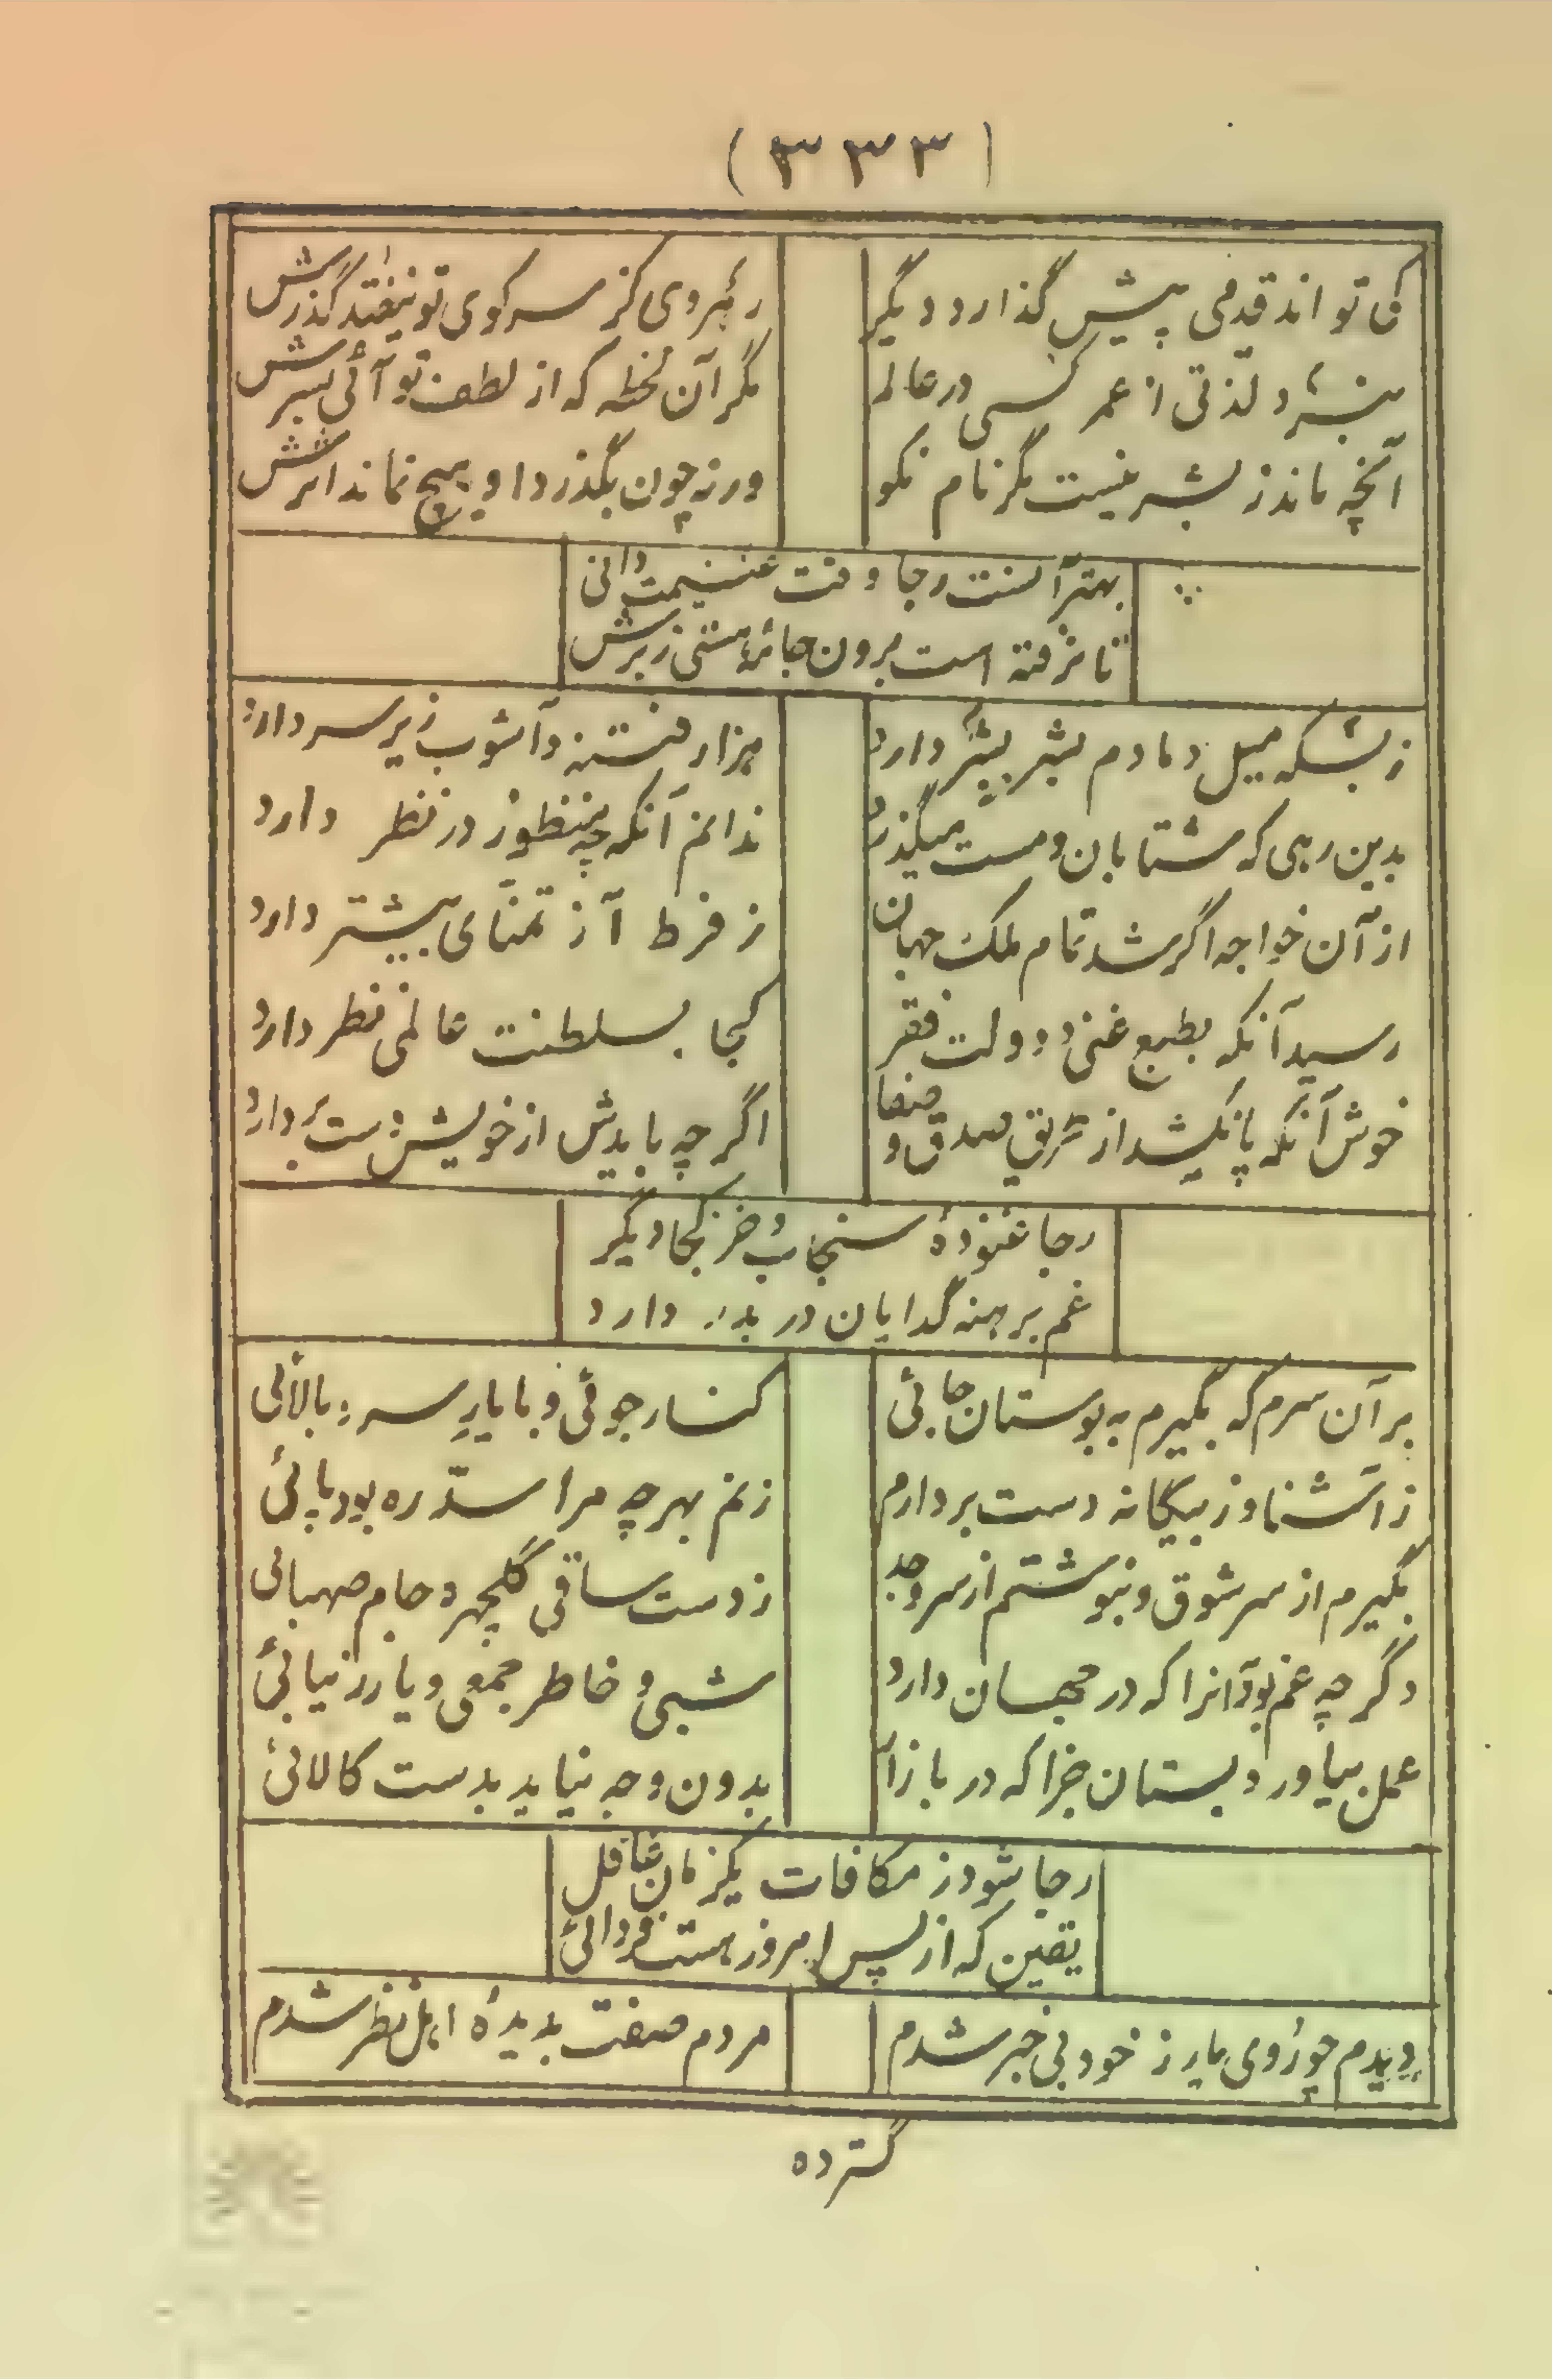 (۳۳۳)
کی تواند قدمی پیش گذارد دیگر
رهروی کز سر کوی تو نیفتد گذرش
نبرد لذتی از عمر کسی در عالم
مگر آن لحظه که از لطف تو آئی بسرش
آنچه ماند ز بشر نیست مگر نام نکو
ورنه چون بگذرد او هیچ نماند اثرش
بهتر آنست رجا وقت غنیمت دانی
تا نرفته است برون جامهٔ هستی ز برش
ز بسکه میل دمادم بشر بشر دارد
هزار فتنه و آشوب زیر سر دارد
بدین رهی که شتابان و مست میگذرد
ندانم آنکه چه منظور در نظر دارد
از آن خواجه اگر شد تمام ملک جهان
ز فرط آز تمنّای بیشتر دارد
رسید آنکه بطبع غنی و دولت فقر
کجا بسلطنت عالمی نظر دارد
خوش آنکه پا نکشد از طریق صدق و صفا
اگر چه بایدش از خویش دست بردارد
رجا غنودهٔ سنجاب و خز کجا دیگر
غم برهنه گدایان در بدر دارد
بر آن سرم که بگیرم به بوستان جائی
کنار جوئی و با یار سرو بالائی
ز آشنا و ز بیگانه دست بردارم
زنم بهر چه مرا سدّ ره بود پائی
بگیرم از سر شوق و بنوشم از سر وجد
ز دست ساقی گلچهره جام صهبائی
دگر چه غم بود آنرا که در جهان دارد
شبی و خاطر جمعی و یار زیبائی
عمل بیاور و بستان جزا که در بازار
بدون وجه نیاید بدست کالائی
رجا شود ز مکافات یکزمان غافل
یقین که از پس امروز هست فردائی
دیدم چو روی یار ز خود بی خبر شدم
مردم صفت بدیدهٔ اهل نظر شدم
گسترده